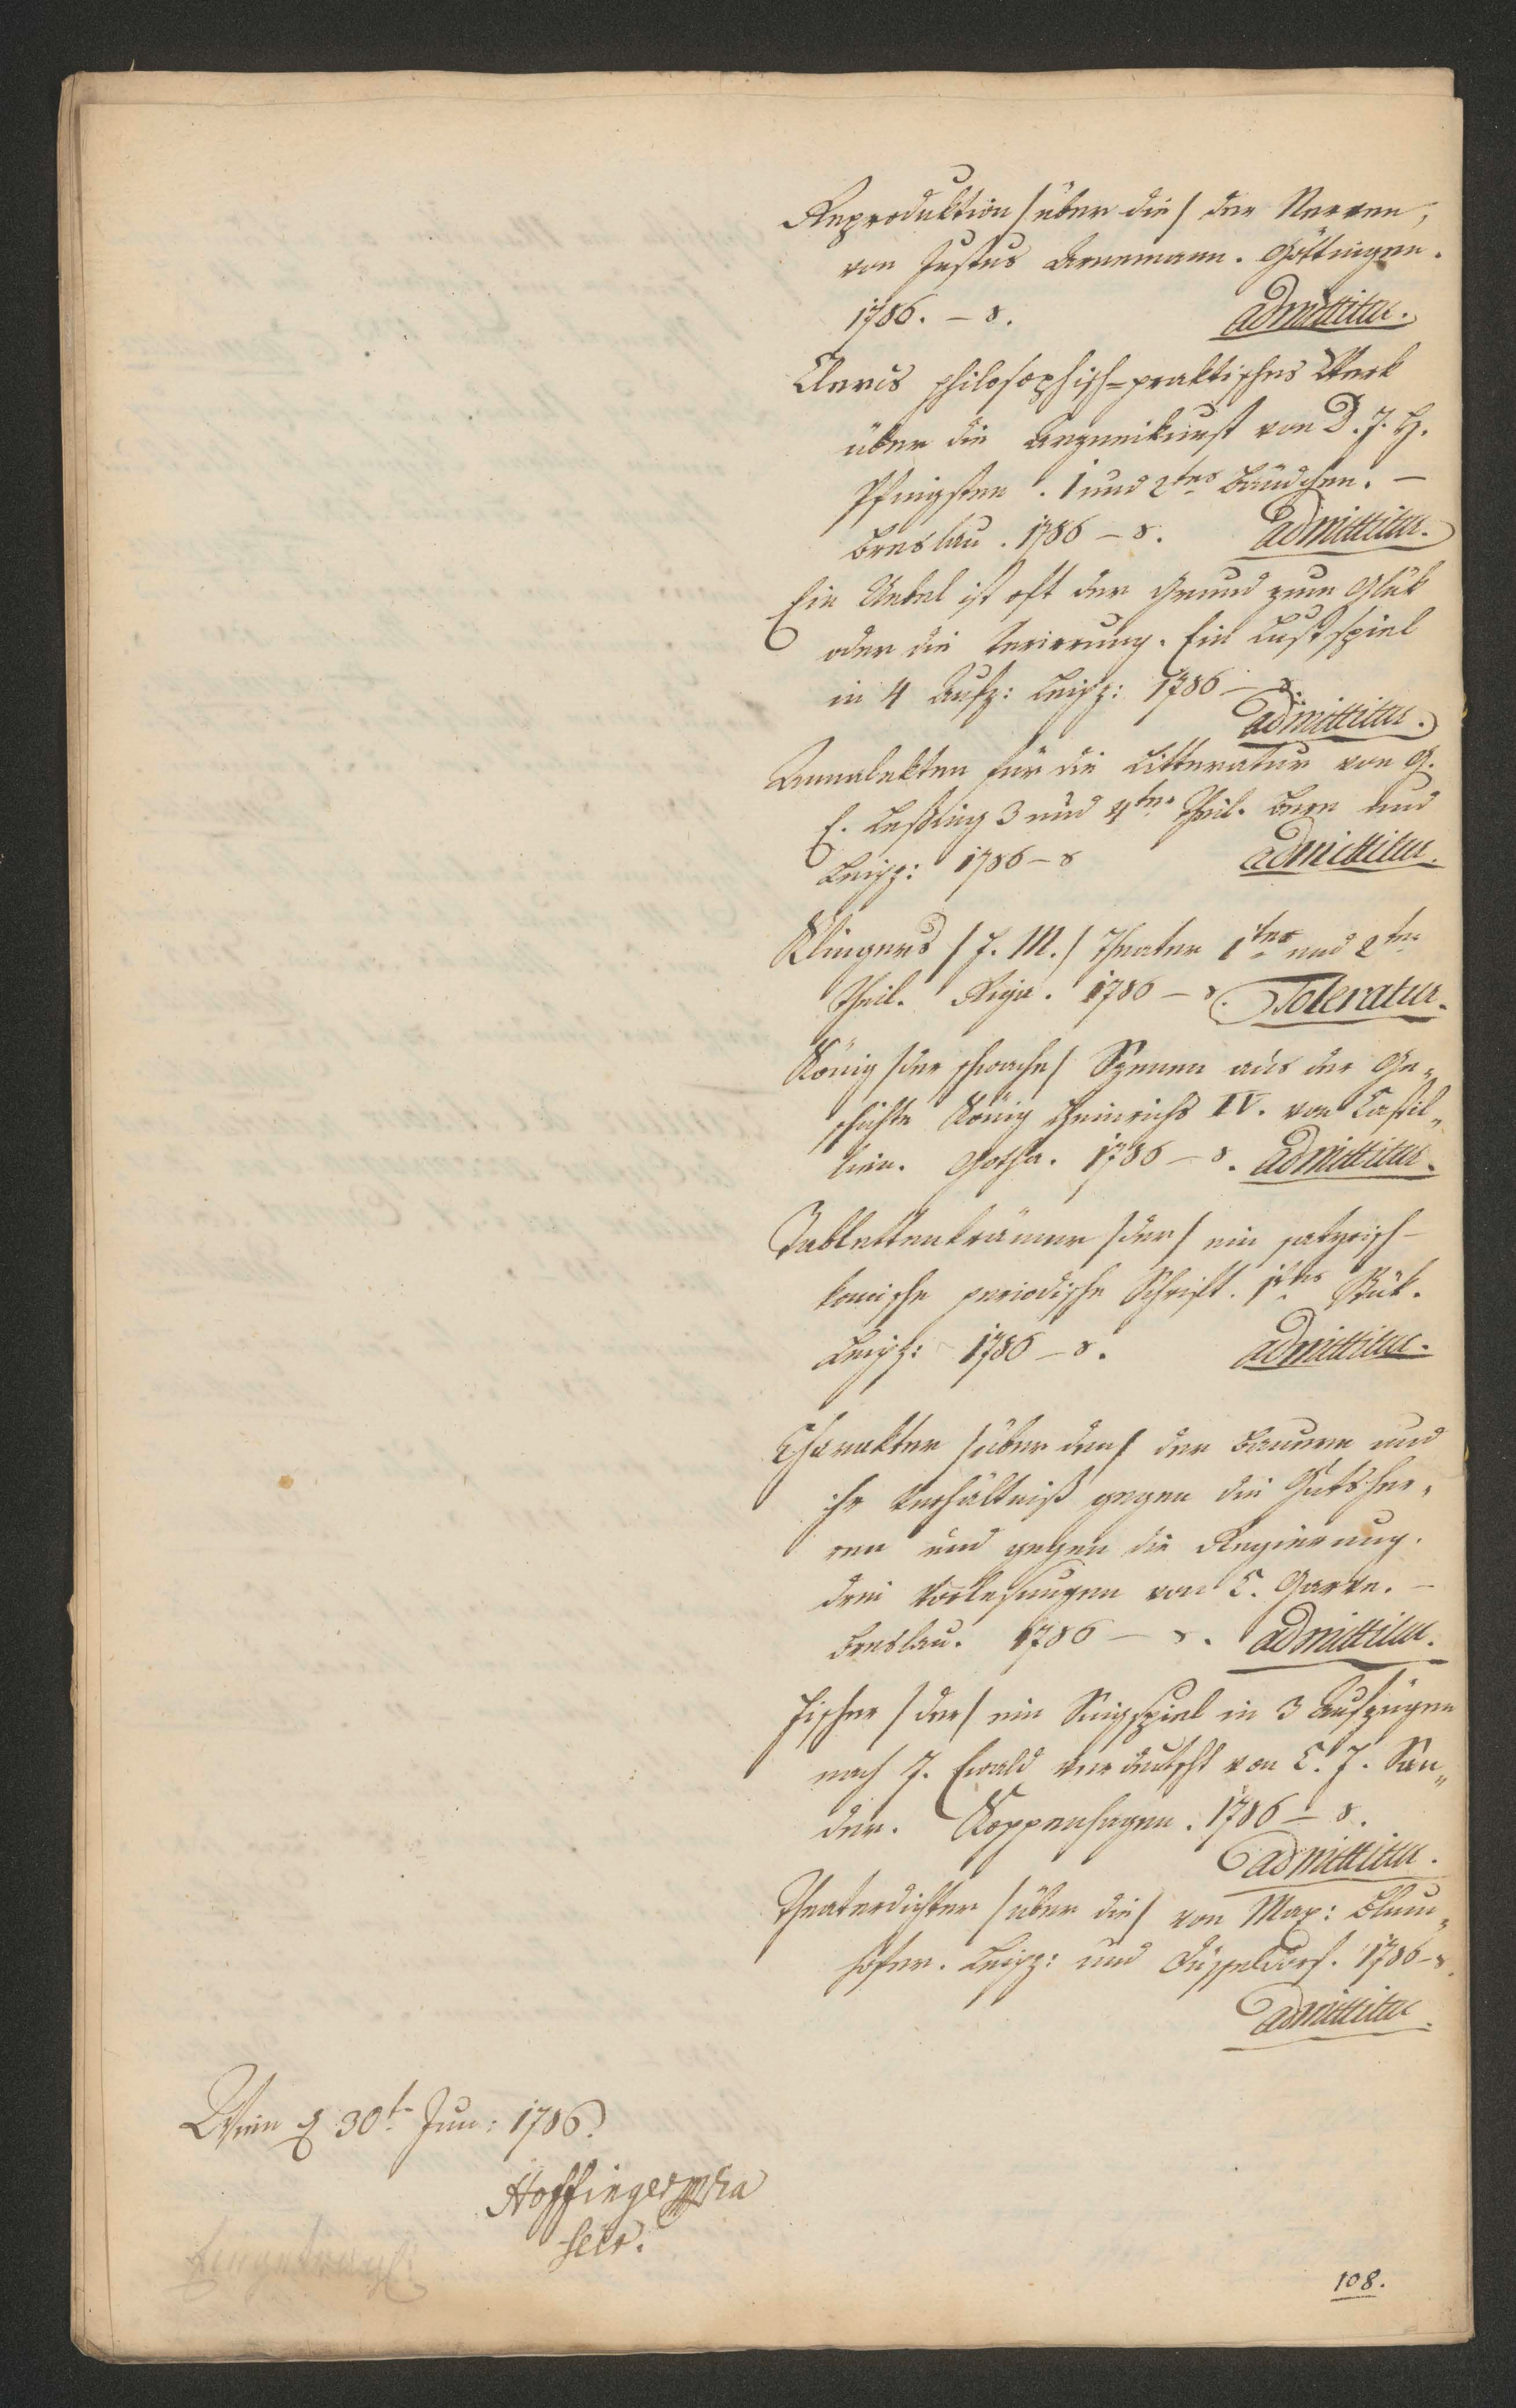 Reproduktion /über die/ der Nerven,
von Justus Arnemann. Göttingen.
1786. – 8. admittitur.
Clercs philosophisch-praktisches Werk
über die Arzneikunst von D. J. H.
Pfingsten. 1 und 2tes Bändchen. –
Breslau. 1786 – 8. admittitur.
Ein Uebel ist oft der Grund zum Glük
oder die Verirrung. Ein Lustspiel
in 4 Aufz: Leipz: 1786 – 8.
admittitur.
Annalekten für die Litteratur von G.
E. Leßing 3 und 4ter Theil. Bern und
Leipz: 1786 – 8 admittitur.
Klingers /F. M./ Theater 1ter und 2ter
Theil. Riga. 1786 – 8. Toleratur.
König /der schwache/ Szenen aus der Ge„
schichte König Heinrichs IV. von Castil„
lien. Gotha. 1786 – 8. admittitur.
Tablettenkrämer /der/ ein satyrisch-
komische periodische Schrift. 1tes Stük.
Leipz: 1786 – 8. admittitur.
Charakter /über den/ der Bauern und
ihr Verhältniß gegen die Gutsher„
ren und gegen die Regierung.
drei Vorlesungen von C. Garve. –
Breslau. 1786 – 8. admittitur.
Fischer /der/ ein Singspiel in 3 Aufzügen
nach J. Ewald verdeutscht von C. F. San„
der. Koppenhagen. 1786 – 8.
admittitur.
Theaterdichter /über die/ von Max: Blum„
hofer. Leipz: und Düsseldorf. 1786 – 8.
admittitur.
Wien d 30t Jun: 1786.
Hoffinger mpria
Secr.
108.